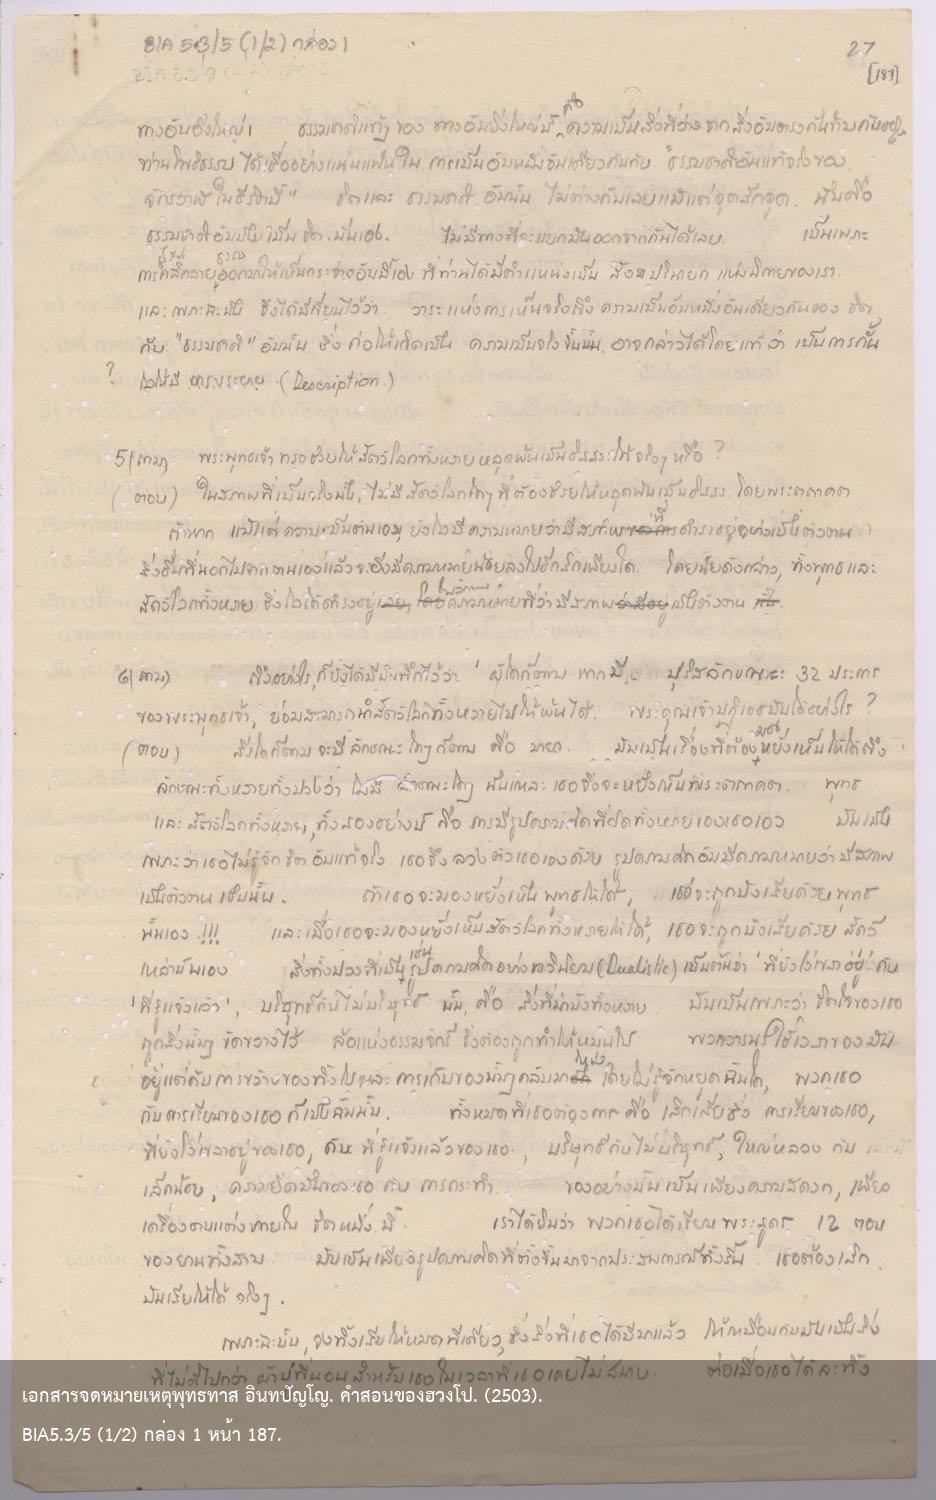 BIA 5.3/5 (1/2) กล่อง 1
27
[187]
ทางอันยิ่งใหญ่! ธรรมชาติแท้ๆ ของ ทางอันยิ่งใหญ่นี้ คือ ความเป็นสิ่งที่ว่างจากสิ่งอันตรงกันข้าม
ท่านโพธิธรรม ได้เชื่ออย่างแน่นแฟ้น ใน การเป็นอันหนึ่งอันเดียวกันกับ "ธรรมชาติอันแท้จริงของ
จักรวาฬ ในชีวิตนี้" จิตและ ธรรมชาติ อันนั้น ไม่ต่างกันเลยแม้แต่จุดสักจุด. นั่นคือ
ธรรมชาติ อันนั้น เป็น จิต นั่นเอง. ไม่มีทางที่จะแยกมันออกจากกันได้เลย. เป็นเพราะ
ให้เป็นกระจ่างอันนี้เอง ที่ท่านได้มีตำแหน่งเป็น สังฆปริณายก แห่งนิกายของเรา.
และเพราะฉะนั้น จึงได้มีเขียนไว้ว่า วาระแห่งการเห็นจริงถึง ความเป็นอันหนึ่งอันเดียวกันของ จิต
กับ "ธรรมชาติ" อันนั้น ซึ่ง ก่อให้เกิดเป็น ความเป็นจริงขึ้นนั้น, อาจกล่าวได้โดยแท้ว่า เป็นการกั้น
? ไม่ให้มี การบรรยาย. (Description.)
5 (ถาม) พระพุทธเจ้า ทรงช่วยให้สัตว์โลกทั้งหลาย หลุดพ้นเป็นอิสระได้ จริงๆ หรือ ?
(ตอบ) ในสภาพที่เป็นจริงนั้น, ไม่มี สัตว์โลกใดๆ ที่ต้องช่วยให้หลุดพ้นเป็นอิสระ โดยพระตถาคต
ถ้าหาก แม้แต่ ความเป็นตนเอง ยังไม่มีความหมายว่ามีสภาพที่ดำรงอยู่อย่างเป็นตัวตน
สิ่งอื่นที่นอกไปจากตนเองแล้วจะยิ่งมีความหมายน้อยลงไปอีกสักเพียงใด. โดยนัยดังกล่าว, ทั้งพุทธและ
สัตว์โลกทั้งหลาย จึงไม่ได้ดำรงอยู่ ในความหมายที่ว่ามีสภาพเป็นตัวตน
6 (ถาม) ถึงอย่างไร, ก็ยังได้มีบันทึกไว้ว่า 'ผู้ใดก็ตาม หากมี ปุริสลักษณะ 32 ประการ
ของพระพุทธเจ้า, ย่อมสามารถนำสัตว์โลกทั้งหลายไปให้พ้นได้. พระคุณเจ้าปฏิเสธมันได้อย่างไร ?
(ตอบ) สิ่งใดก็ตาม จะมีลักษณะใดๆ ก็ตาม คือ มายา. มันเป็นเรื่องที่ต้อง มอง หยั่งเห็นให้ได้ถึง
ลักษณะทั้งหลายทั้งปวงว่า ไม่มี ลักษณะใดๆ นั่นแหละ เธอจึงจะหยั่งเห็นพระตถาคต. พุทธ
และสัตว์โลกทั้งหลาย, ทั้งสองอย่างนี้ คือ การมีรูปความคิดที่ผิดทั้งหลายของเธอเอง มันเป็น
เพราะว่าเธอไม่รู้จัก จิต อันแท้จริง เธอจึง ลวง ตัวเธอเองด้วย รูปความคิดอันมีความหมายว่ามีสภาพ
เป็นตัวตน เช่นนั้น. ถ้าเธอจะมองหยั่งเห็น พุทธ ให้ได้, เธอจะถูกบังเสียด้วย พุทธ
นั้นเอง !!! และเมื่อเธอจะมองหยั่งเห็นสัตว์โลกทั้งหลายให้ได้, เธอจะถูกบังเสียด้วย สัตว์
เหล่านั้นเอง สิ่งทั้งปวงที่เป็น เช่น รูปความคิดอย่างทวินิยม (Dualistic) เป็นต้นว่า 'ที่ยังโง่เขลาอยู่' กับ
'ที่รู้แจ้งแล้ว', บริสุทธิ์กับไม่บริสุทธิ์ นั้น, คือ สิ่งที่มาบังทั้งหลาย. มันเป็นเพราะว่า จิตใจของเธอ
ถูกสิ่งนั้นๆ ขัดขวางไว้ ล้อแห่งธรรมจักร์ จึงต้องถูกทำให้หมุนไป พวกวานรใช้เวลาของมัน
อยู่แต่กับ การขว้างของทิ้งไป และ การเก็บของนั้นๆ กลับมาใหม่ โดยไม่รู้จักหยุดฉันใด, พวกเธอ
กับการเรียนของเธอ ก็เป็นฉันนั้น. ทั้งหมดที่เธอต้องการ คือ เลิกเสียซึ่ง การเรียนของเธอ,
ที่ยังโง่เขลาอยู่ของเธอ, กับ ที่รู้แจ้งแล้วของเธอ, บริสุทธิ์กับไม่บริสุทธิ์, ใหญ่หลวง กับ
เล็กน้อย, ความยึดมั่นของเธอ กับ การกระทำ. ของอย่างนั้นเป็นเพียงความสะดวก, เพียง
เครื่องตบแต่งภายใน จิตหนึ่ง นี้. เราได้ยินว่า พวกเธอได้เรียน พระสูตร 12 ตอน
ของยานทั้งสาม มันเป็นเพียงรูปความคิดที่ตั้งขึ้นมาจากประสบการณ์ทั้งสิ้น. เธอต้องเลิก
มันเสียให้ได้ จริงๆ.
เพราะฉะนั้น, จงทิ้งเสียให้หมดทีเดียว, ซึ่งสิ่งที่เธอได้มีมาแล้ว ให้เหมือนกับมันเป็นสิ่ง
ที่ไม่ดีไปกว่า ผ้าปูที่นอน สำหรับเธอในเวลาที่เธอเคยไม่สบาย. ต่อเมื่อเธอได้ละทิ้ง
เอกสารจดหมายเหตุพุทธทาส อินทปัญโญ. คำสอนของฮวงโป. (2503).
BIA5.3/5 (1/2) กล่อง 1 หน้า 187.